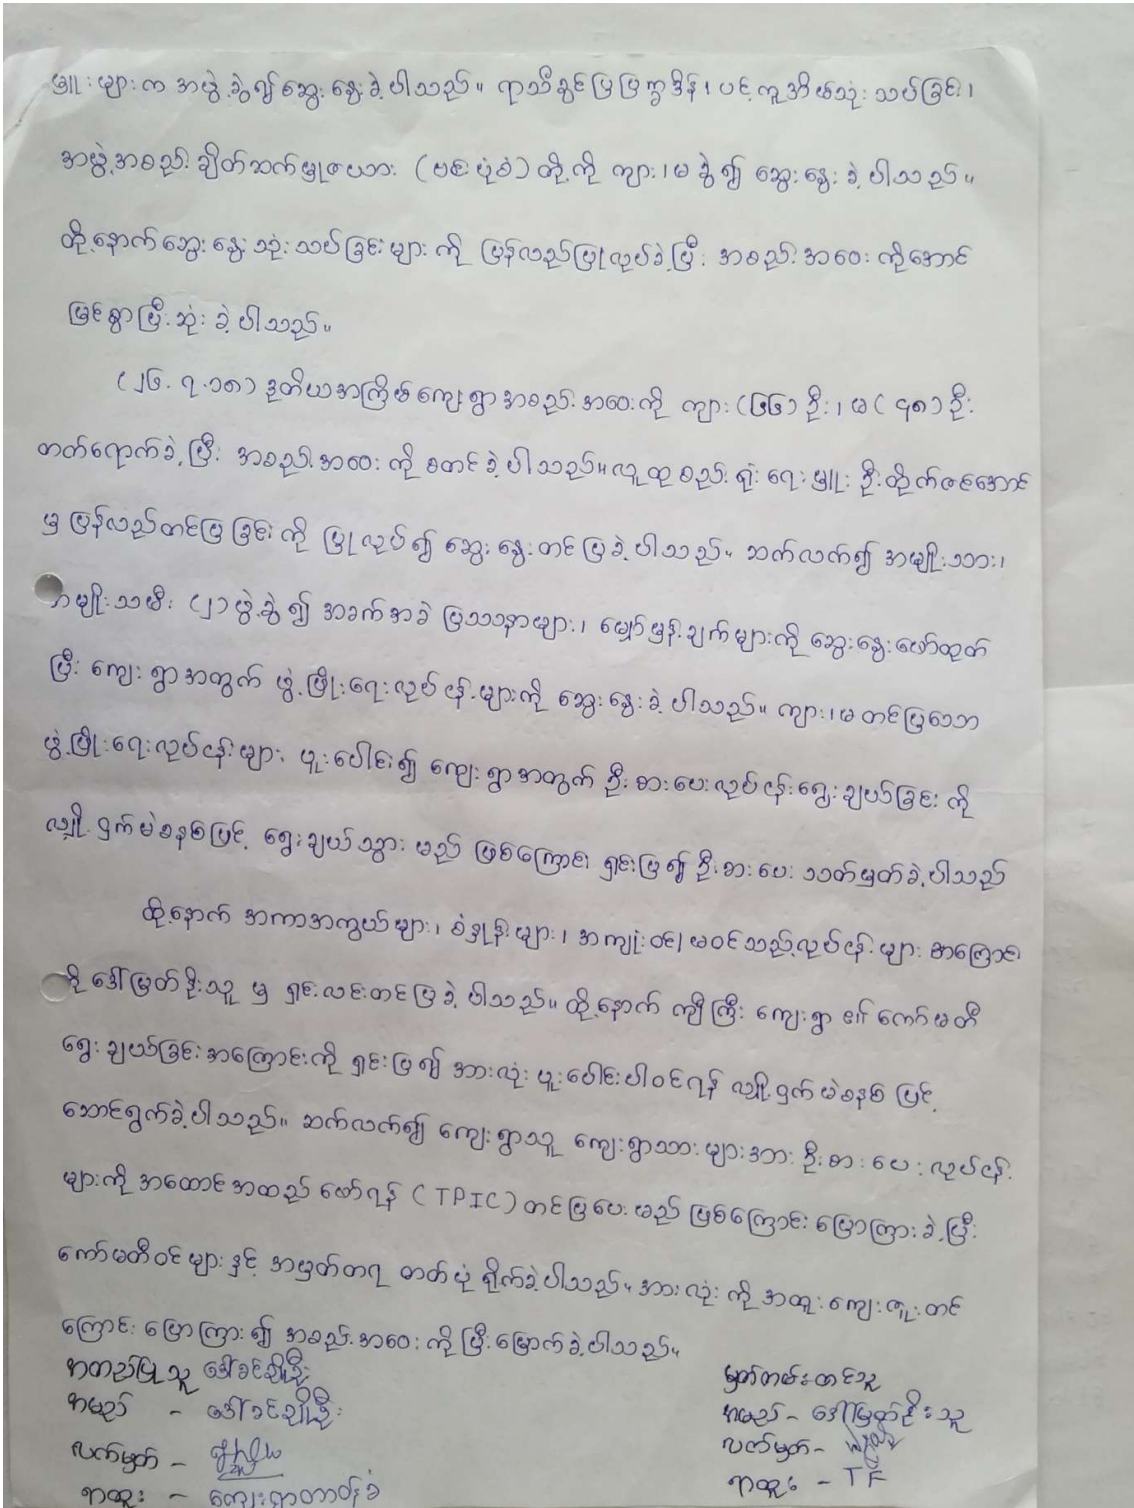 မှူးများက အဖွဲ့ခွဲ၍ဆွေးနွေးခဲ့ပါသည်။ ရာသီခွင်ပြပြက္ခဒိန်၊ ပင့်ကူအိမ်သုံးသပ်ခြင်း၊
အဖွဲ့အစည်းချိတ်ဆက်မှုဇယား (ဗင်းပုံစံ) တို့ကို ကျား၊မ ခွဲ၍ ဆွေးနွေးခဲ့ပါသည်။
ထို့နောက်ဆွေးနွေးသုံးသပ်ခြင်းများကို ပြန်လည်ပြုလုပ်ခဲ့ပြီး အစည်းအဝေးကိုအောင်
မြင်စွာပြီးဆုံးခဲ့ပါသည်။
(၂၆.၇.၁၈) ဒုတိယအကြိမ်ကျေးရွာအစည်းအဝေးကို ကျား (၆၆) ဦး၊ မ (၄၈) ဦး
တက်ရောက်ခဲ့ပြီး အစည်းအဝေးကို စတင်ခဲ့ပါသည်။ လူထုစည်းရုံးရေးမှူး ဦးထိုက်ဇင်အောင်
မှ ပြန်လည်တင်ပြခြင်းကို ပြုလုပ်၍ ဆွေးနွေးတင်ပြခဲ့ပါသည်။ ဆက်လက်၍ အမျိုးသား၊
အမျိုးသမီး (၂) ဖွဲ့ခွဲ၍ အခက်အခဲပြဿနာများ၊ မျှော်မှန်းချက်များကို ဆွေးနွေးဖော်ထုတ်
ပြီး ကျေးရွာအတွက် ဖွံ့ဖြိုးရေးလုပ်ငန်းများကို ဆွေးနွေးခဲ့ပါသည်။ ကျား၊မ တင်ပြသော
ဖွံ့ဖြိုးရေးလုပ်ငန်းများ ပူးပေါင်း၍ ကျေးရွာအတွက် ဦးစားပေးလုပ်ငန်းရွေးချယ်ခြင်းကို
လျှို့ဝှက်မဲစနစ်ဖြင့် ရွေးချယ်သွားမည် ဖြစ်ကြောင်း ရှင်းပြ၍ ဦးစားပေး သတ်မှတ်ခဲ့ပါသည်
ထို့နောက် အကာအကွယ်များ၊ စံနှုန်းများ၊ အကျုံးဝင်၊ မဝင်သည့်လုပ်ငန်းများ အကြောင်း
ကို ဒေါ်မြတ်နိုးသူ မှ ရှင်းလင်းတင်ပြခဲ့ပါသည်။ ထို့နောက် ကျီကြီး ကျေးရွာ၏ ကော်မတီ
ရွေးချယ်ခြင်းအကြောင်းကို ရှင်းပြ၍ အားလုံး ပူးပေါင်းပါဝင်ရန် လျှို့ဝှက်မဲစနစ် ဖြင့်
ဆောင်ရွက်ခဲ့ပါသည်။ ဆက်လက်၍ ကျေးရွာသူ ကျေးရွာသားများအား ဦးစားပေးလုပ်ငန်း
များကို အထောင်အထည်ဖော်ရန် (TPIC) တင်ပြပေးမည် ဖြစ်ကြောင်း ပြောကြားခဲ့ပြီး
ကော်မတီဝင်များနှင့် အမှတ်တရ ဓာတ်ပုံရိုက်ခဲ့ပါသည်။ အားလုံးကို အထူးကျေးဇူးတင်
ကြောင်း ပြောကြား၍ အစည်းအဝေးကိုပြီးမြောက်ခဲ့ပါသည်။
အတည်ပြုသူ ဒေါ်ခင်ချိုဦး
မှတ်တမ်းတင်သူ
အမည် - ဒေါ်ခင်ချိုဦး
အမည် - ဒေါ်မြတ်နိုးသူ
လက်မှတ် -
လက်မှတ် -
ရာထူး - ကျေးရွာတာဝန်ခံ
ရာထူး - TF